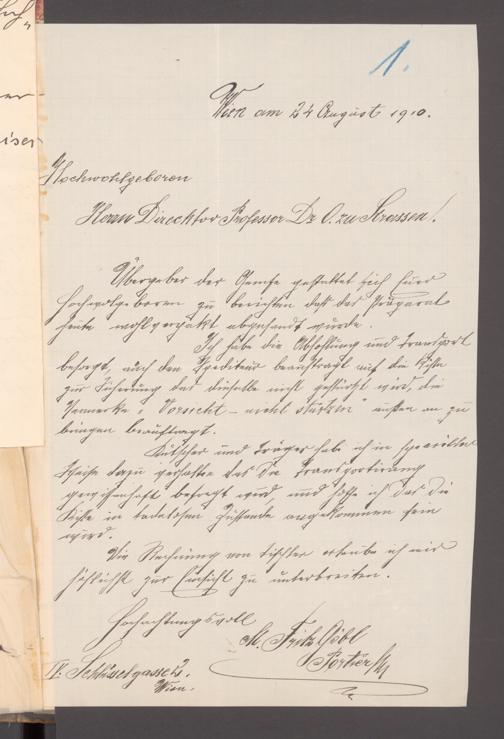 1.
Wien am 24 August 1910.
Hochwohlgeboren
Herrn Direcktor Professor Dr O. zur Strassen!
Übergeber der Gemse gestattet sich Euer
Hochwolgeboren zu berichten daß das Präparat
heute wohlverpakt abgesandt wurde.
Ich habe die Abholung und Transport
besorgt, auch den Spediteur beauftragt auf die Kiste
zur Sicherung das dieselbe nicht gestürzt wird, die
Vermerke: "Vorsicht – nicht stürzen" außen an zu
bringen beauftragt.
Kutscher und Träger habe ich in specieller
Weise dazu verhalten das die Transportirung
gewissenhaft besorgt wird, und hoffe ich das die
Kiste in tadelosen Zustande angekommen sein
wird.
Die Rechnung von Tischler erlaube ich mir
höflichst zur Einsicht zu unterbreiten.
Hochachtungsvoll
Fritz
Portier
IV. Schlüsselgasse 2.
Wien.